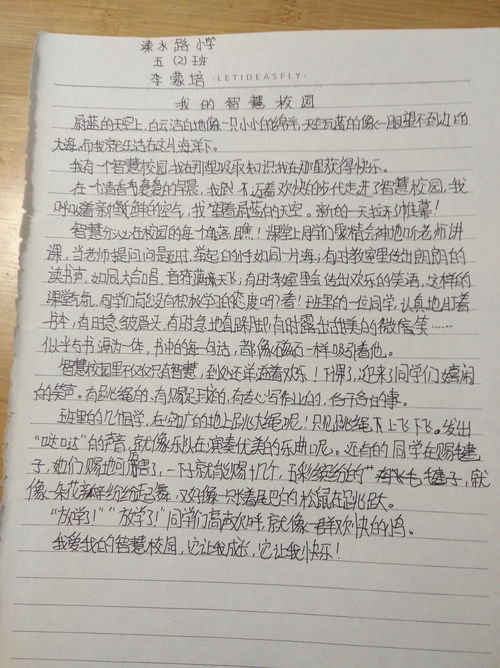 溧水路小学
五(2)班
李蒙培 ·LETIDEASFLY·
我的智慧校园
蔚蓝的天空上,白云洁白地像一只小小的绵羊,天空瓦蓝的像一眼望不到边的
大海,而我就生活在这片海洋下。
我有一个智慧校园,我在那里吸取知识,我在那里获得快乐。
在一个清香袅袅的早晨,我迈着欢快的步伐走进了智慧校园,我
呼吸着新鲜的空气,我望着蔚蓝的天空。新的一天拉开了帷幕!
智慧分必在校园的每个角落,瞧!课堂上同学们聚精会神地听老师讲
课,当老师提问问题时,举起的手如同一片海;有时教室里传出朗朗的
读书声,如同大合唱,音符满天飞;有时教室里会传出欢乐的笑语,这样的
课堂气氛,同学们能没有积极学习的态度吗?看!班里的一位同学,认真地盯着
书本,有时急皱眉头,有时急地直跺脚,有时露出甜美的微笑……
似乎与书融为一体,书中的每一句话,都像磁石一样吸引着他。
智慧校园里不仅仅只有智慧,到处还洋溢着欢乐!下课了,迎来了同学们嬉闹
的笑声。有跳绳的、有踢足球的、有专心写作业的,各干各的事。
班里的几个同学,在空旷的地上跳大绳呢!只见跳绳下上飞下飞。发出
"哒哒"的声音,就像乐队在演奏优美的乐曲呢。还有的同学在踢毽
子,她们踢地可厉害了,一下子就能踢十几个,五彩缤纷的"毽子,就
像一朵花在纷纷起舞,又好像一只长着尾巴的松鼠在跳跃。
"放学!""放学了!"同学们高声欢呼,就像一群欢快的小鸟。
我爱我的智慧校园,它让我成长,它让我快乐!